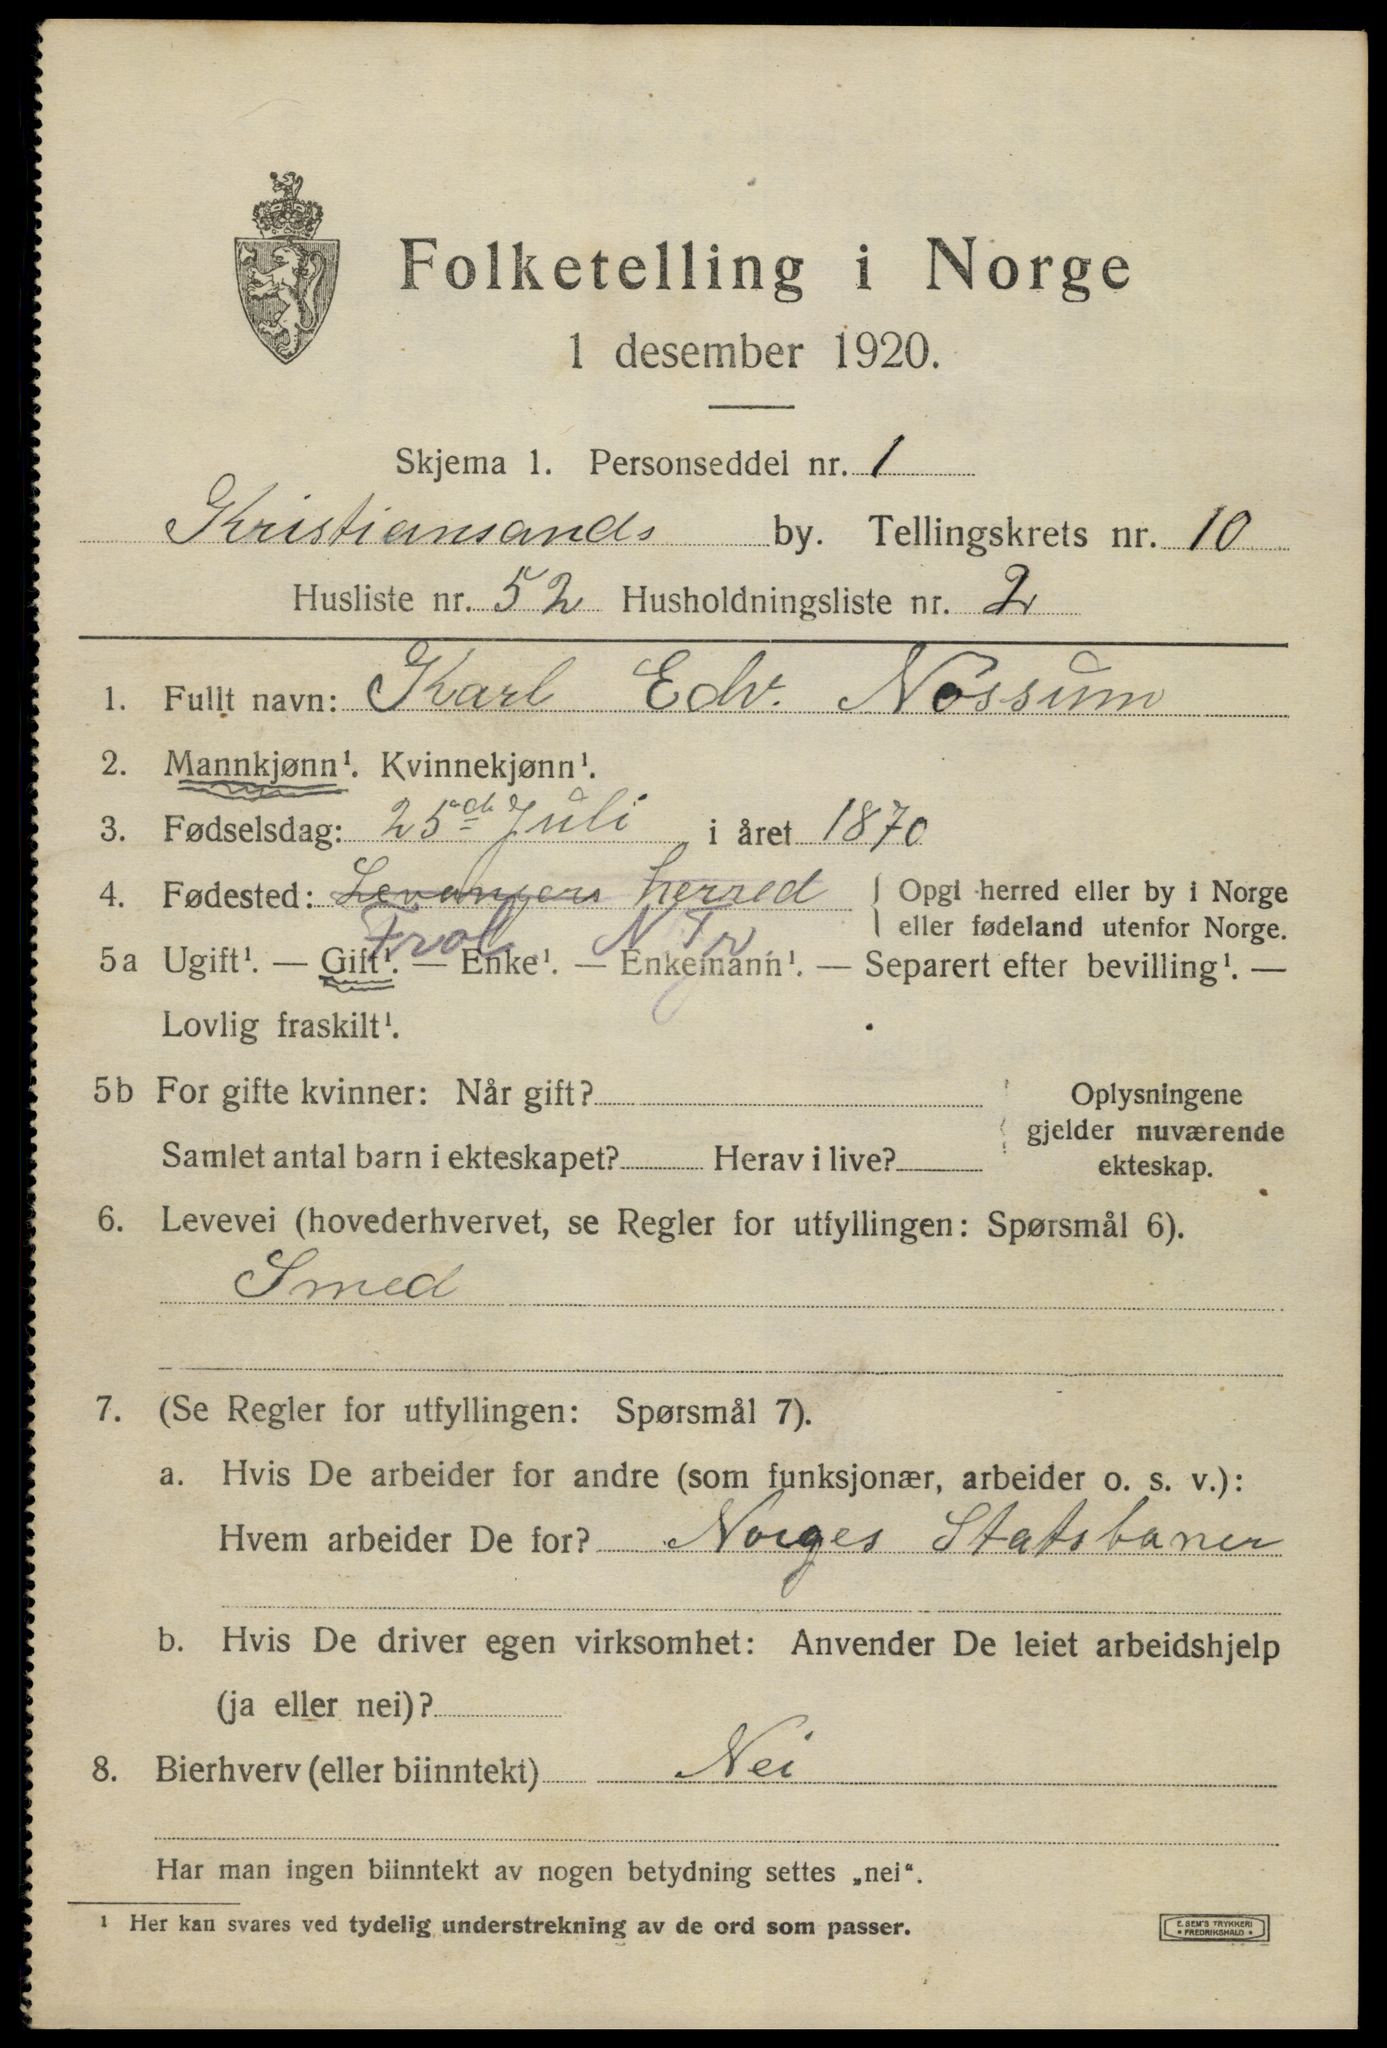 Folketelling i Norge
1 desember 1920.
Skjema 1. Personseddel nr. 1
Kristiansands by. Tellingskrets nr. 10
Husliste nr. 52 Husholdningsliste nr. 2
1. Fullt navn: Karl Edv. Nossum
2. Mannkjønn¹. Kvinnekjønn¹.
3. Fødselsdag: 25de Juli i året 1870
4. Fødested: Levangers herred { Opgi herred eller by i Norge
Frol N Tr. { eller fødeland utenfor Norge.
5a Ugift¹. — Gift¹. — Enke¹. — Enkemann¹. — Separert efter bevilling¹. —
Lovlig fraskilt¹.
5b For gifte kvinner: Når gift? Oplysningene
gjelder nuværende
Samlet antal barn i ekteskapet? Herav i live? ekteskap.
6. Levevei (hovederhvervet, se Regler for utfyllingen: Spørsmål 6).
Smed
7. (Se Regler for utfyllingen: Spørsmål 7).
a. Hvis De arbeider for andre (som funksjonær, arbeider o. s. v.):
Hvem arbeider De for? Norges Statsbaner
b. Hvis De driver egen virksomhet: Anvender De leiet arbeidshjelp
(ja eller nei)?
8. Bierhverv (eller biinntekt) Nei
Har man ingen biinntekt av nogen betydning settes „nei“.
¹ Her kan svares ved tydelig understrekning av de ord som passer.
E. SEM'S TRYKKERI
* FREDRIKSHALD *